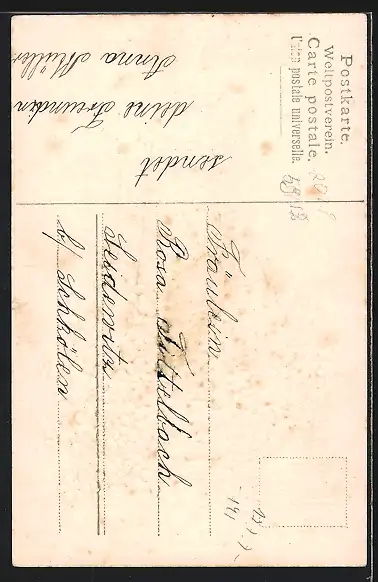 Postkarte.
Weltpostverein.
Carte postale.
Union postale universelle.
sendet
deine Freundin
Anna Müller
Fräulein
Rosa Fittelbach
Seidewitz
b/ Schkölen